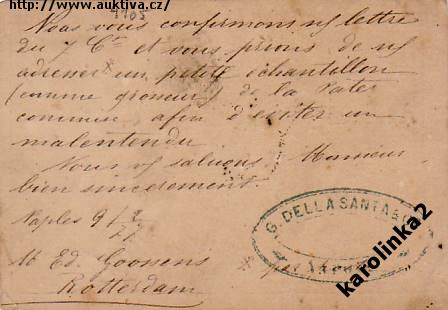 https://www.auktiva.cz/
Nous vous confirmons n/ lettre
du 7 Ct et vous prions de n/
adresser un petit échantillon
(comme grosseur) de la
connue, afin d'éviter un
malentendu
Nous v/ saluons, Monsieur
bien sincèrement.
Naples 9/
G. DELLA SANTA & C.
M Ed. Goossens
Rotterdam
karolinka2